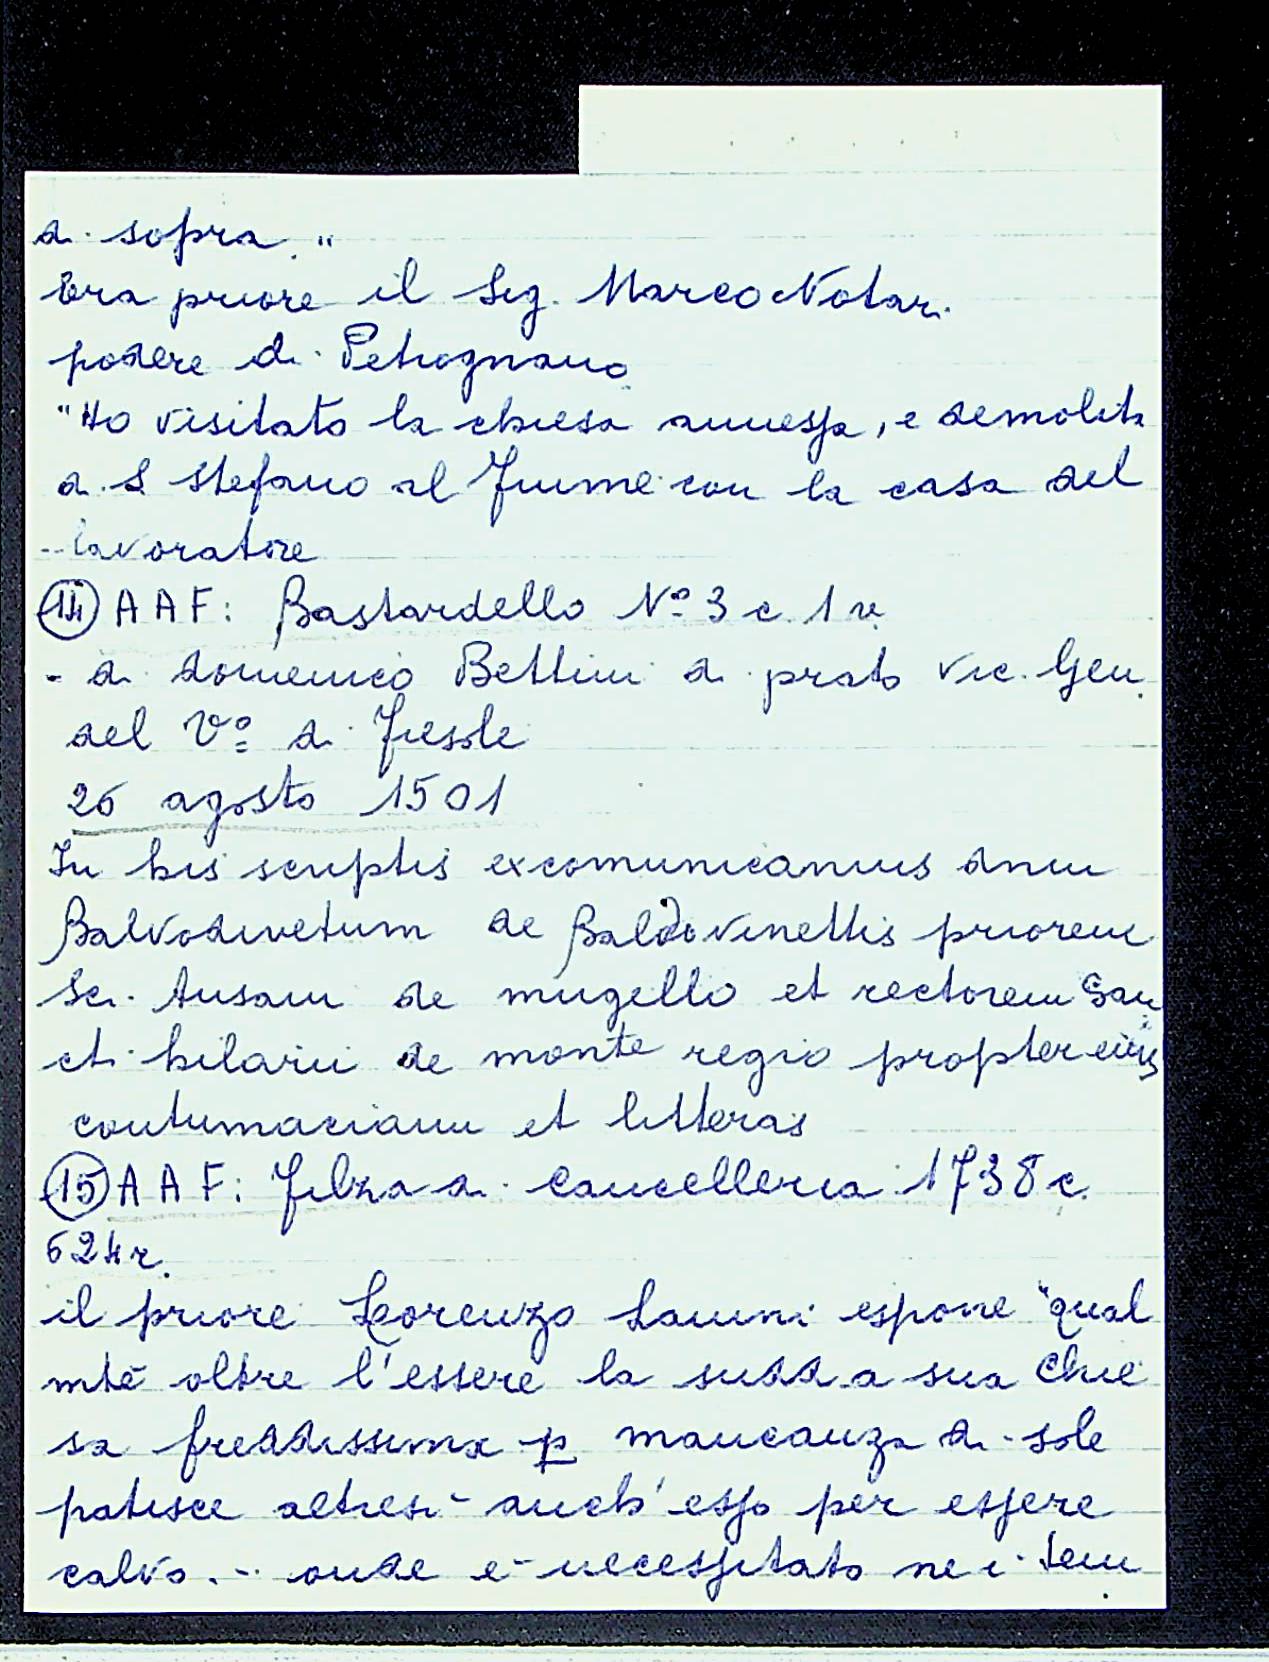 di sopra "
Era priore il Sig. Marco Notari
podere di Petrognano
"Ho visitato la chiesa annessa, e demolita
di S. Stefano al Fiume con la casa del
.. lavoratore
(14) A A F: Bastardello Nº 3 c. 1 v.
- di domenico Bettini di prato vic. Gen.
del Vº di Fiesole
26 agosto 1501
In his scriptis excomunicamus dnm
Balvodinetum de Baldovinettis priorem
Sci. Ansani de mugello et rectorem San
cti hilarii de monte regio propter eius
contumaciam et litteras
(15) A A F: Filza di Cancelleria 1738 c.
624 r.
il priore Lorenzo Lanini espone "qual
mte oltre l'essere la sudd.a sua Chie
sa freddissima p mancanza di sole
patisce altresì anch'esso per essere
calvo. .. onde è necessitato nei tem